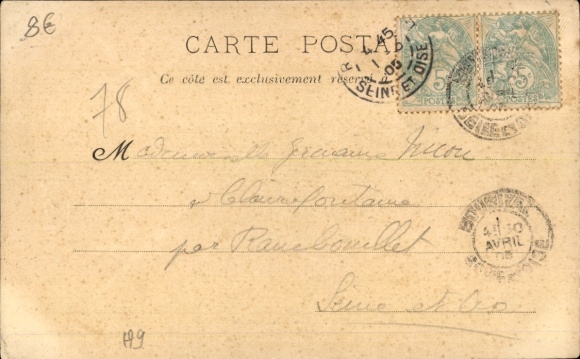 8€
CARTE POSTA
Ce côté est exclusivement réservé à
78
Mademoiselle Germaine
à Clairefontaine
par Rambouillet
Seine et Oise
119
4 45
05
SEINE ET OISE
5
POSTES
5
POSTES
1
AVRIL
05